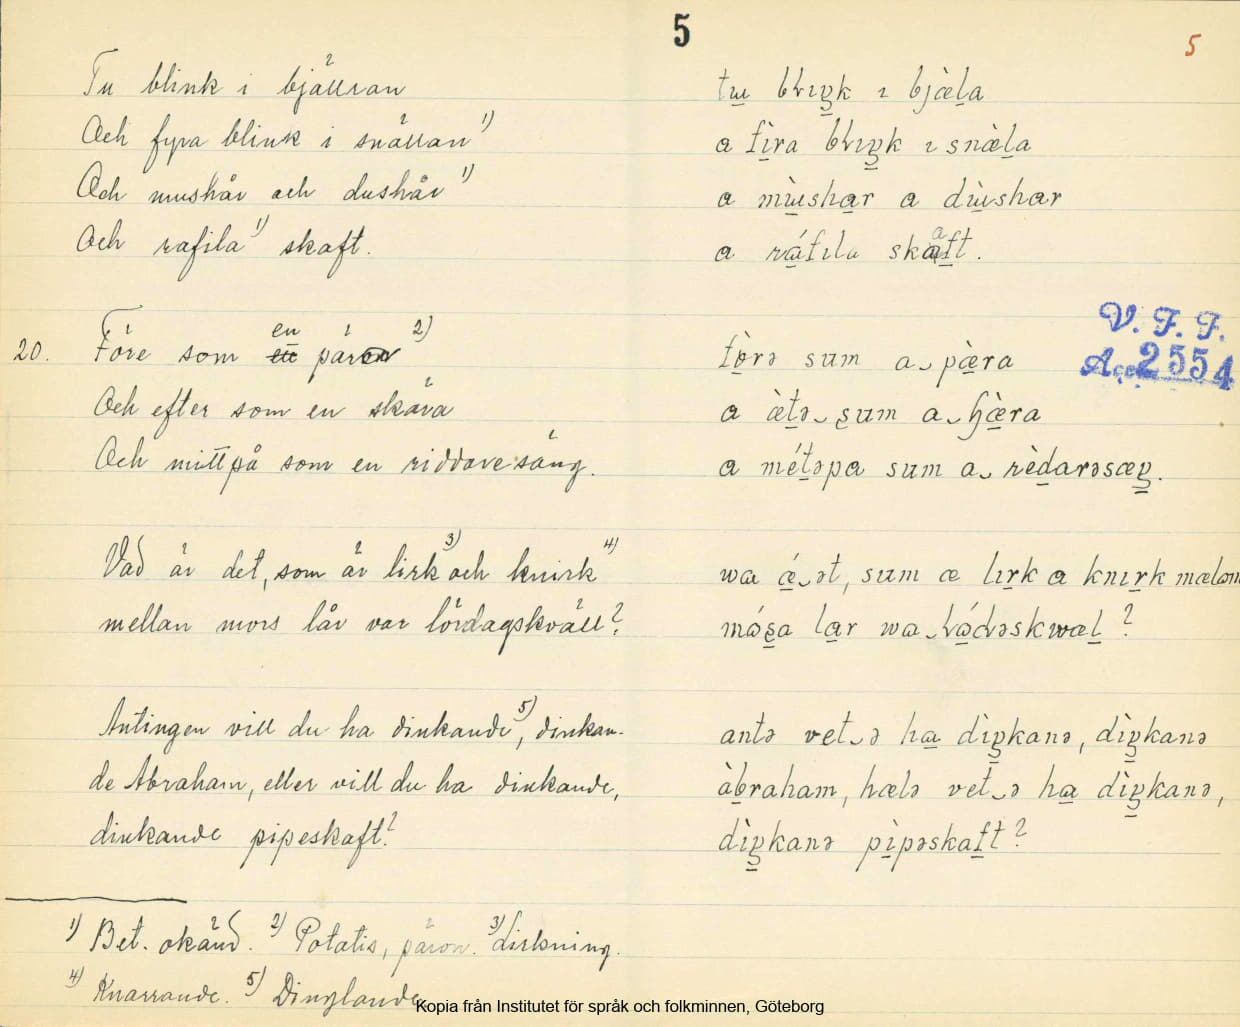 5
5
Tu blink i bjällran
Och fyra blink i snällan 1)
Och mushår och dushår 1)
Och rafila 1) skaft.
tɯ blɪŋk ɪ bjæ̀la
a fìra blɪŋk ɪ snæ̀la
a mɯ̀shar a dɯ̀shar
a ráfɪla skaft.
V. F. F.
Acc. 2554
20. Före som en ett päron 2)
Och efter som en skära
Och mitt på som en riddaresäng.
fø̀rə sum a‿pæ̀ra
a æ̀tə‿ʂum a‿ɧæ̀ra
a métəpa sum a‿rèdarəsæŋ.
Vad är det, som är lirk 3) och knirk 4)
mellan mors lår var lördagskväll?
wa ǽ‿ət, sum æ lɪrk a knɪrk mæləm
móʂa lar wa‿lǿdəskwæl?
Antingen vill du ha dinkande 5), dinkan-
de Abraham, eller vill du ha dinkande,
dinkande pipeskaft?
antə vet‿ə ha dìŋkanə, dìŋkanə
àbraham, hælə vet‿ə ha dìŋkanə,
dìŋkanə pìpəskaft?
1) Bet. okänd. 2) Potatis, päron. 3) Lirkning.
4) Knarrande. 5) Dinglande
Kopia från Institutet för språk och folkminnen, Göteborg